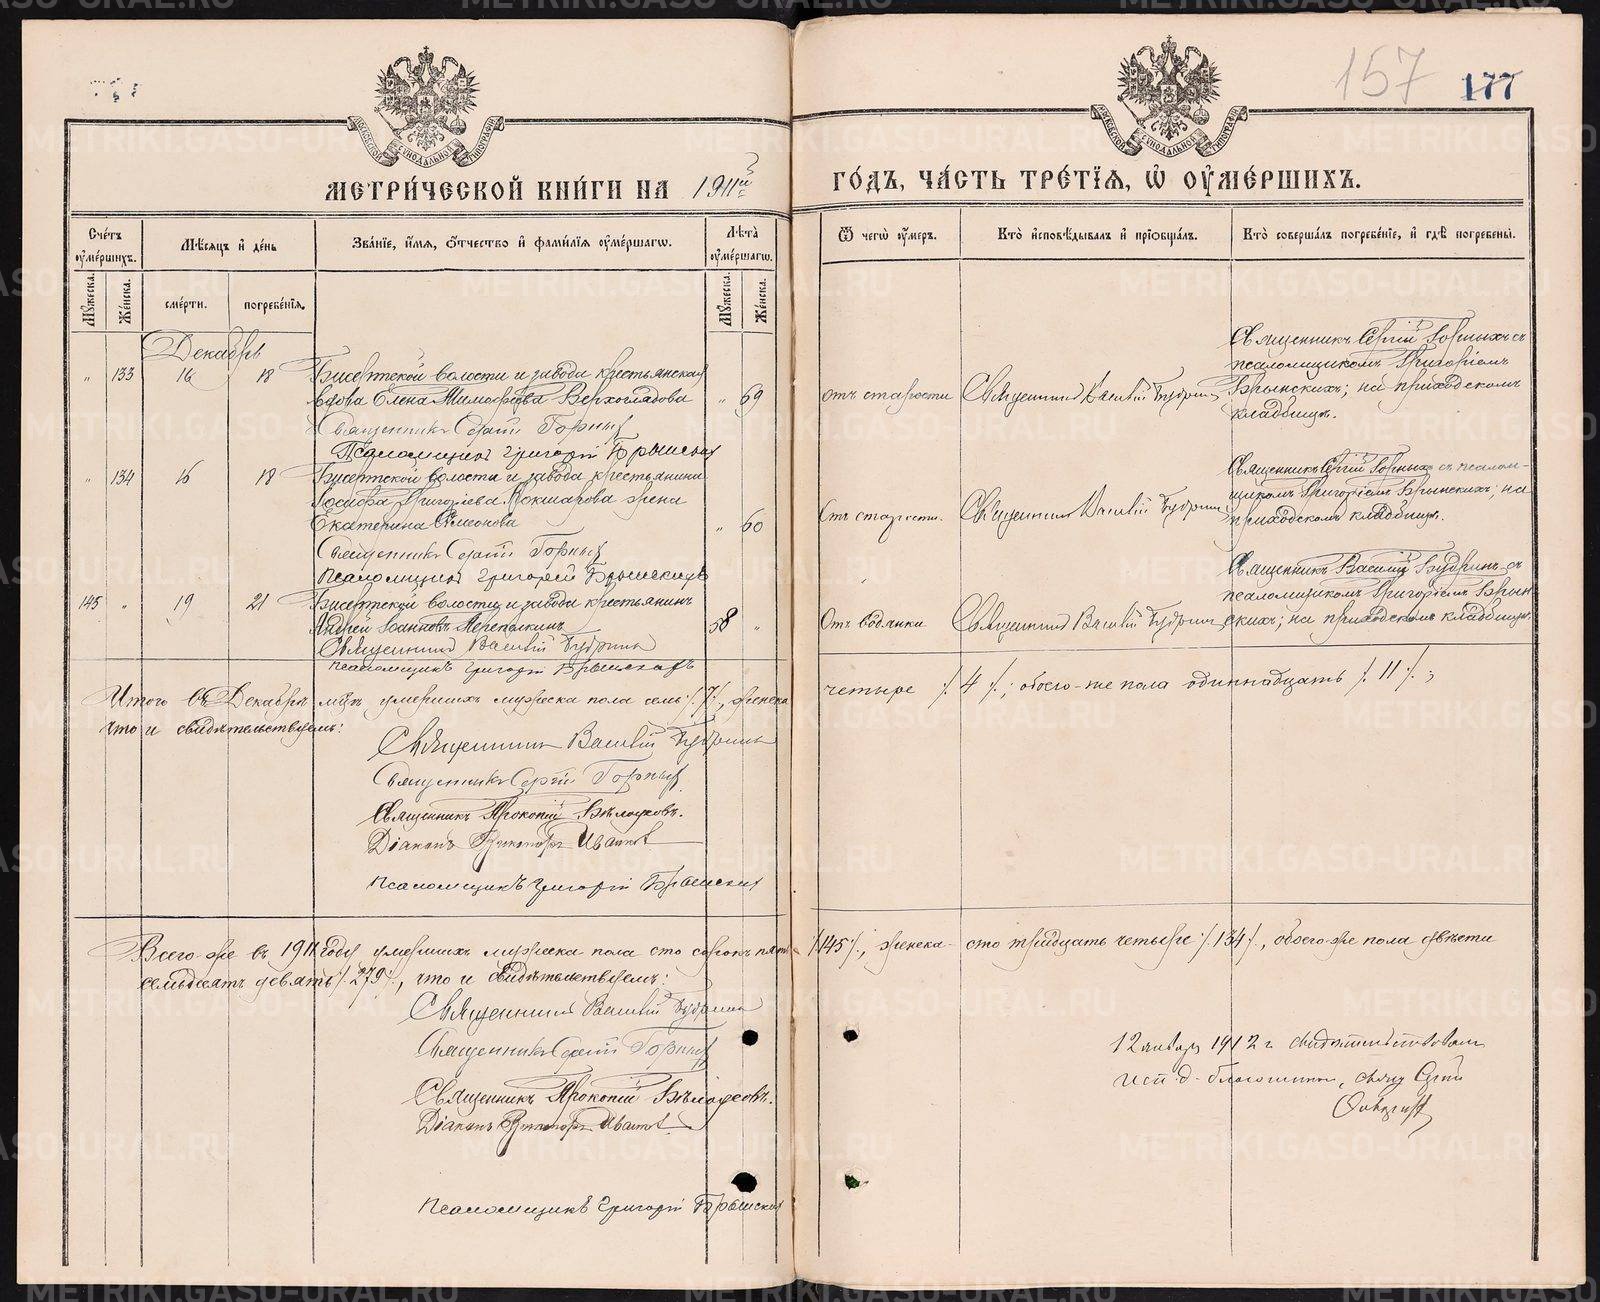 157 177
МЕТРИ́ЧЕСКОЙ КНИ́ГИ НА 1911й
ГО́ДЪ, ЧА́СТЬ ТРЕ́ТЇѦ, Ѡ҆ ОУ҆МЕ́РШИХЪ.
Сче́тъ оу҆ме́ршихъ.
Мѣ́сѧцъ и҆ де́нь
Зва́нїе, и҆́мѧ, ѻ҆́тчество и҆ фами́лїѧ оу҆ме́ршагѡ.
Лѣ́та оу҆ме́ршагѡ.
Ѿ чегѡ̀ оу҆́меръ.
Кто̀ и҆сповѣ́дывалъ и҆ прїѻбща́лъ.
Кто̀ соверша́лъ погребе́нїе, и҆ гдѣ̀ погребены̀.
Мꙋ́жеска.
Же́нска.
сме́рти.
погребе́нїѧ.
Мꙋ́жеска.
Же́нска.
Декабрь
" 133 16 18 Бисертской волости и завода крестьянская
вдова Елена Верхоглядова " 69
Священникъ Сергій Горныхъ
Псаломщикъ Григорій Брынскихъ
отъ старости
Священникъ Василій Будринъ
Священникъ Сергій Горныхъ съ
псаломщикомъ Григоріемъ
Брынскихъ; на приходскомъ
кладбищѣ.
" 134 16 18 Бисертской волости и завода крестьянина
Іосифа Григоріева Кокшарова жена
Екатерина Симеонова " 60
Священникъ Сергій Горныхъ
Псаломщикъ Григорій Брынскихъ
Отъ старости.
Священникъ Василій Будринъ
Священникъ Сергій Горныхъ съ псалом-
щикомъ Григоріемъ Брынскихъ; на
приходскомъ кладбищѣ.
145 " 19 21 Бисертской волости и завода крестьянинъ
Андрей Іоанновъ Мереполкинъ 58 "
Священникъ Василій Будринъ
Псаломщикъ Григорій Брынскихъ
Отъ водянки
Священникъ Василій Будринъ
Священникъ Василій Будринъ съ
псаломщикомъ Григоріемъ Брын-
скихъ; на приходскомъ кладбищѣ.
Итого въ Декабрѣ м-цѣ умершихъ мужеска пола семь /. 7 /., женска четыре /. 4 /.; обоего-же пола одиннадцать /. 11 /.;
что и свидѣтельствуемъ:
Священникъ Василій Будринъ
Священникъ Сергій Горныхъ
Священникъ Прокопій Бѣлоусовъ.
Діаконъ Ивановъ
Псаломщикъ Григорій Брынскихъ
Всего-же въ 1911 году умершихъ мужеска пола сто сорокъ пять /. 145 /., женска- сто тридцать четыре /. 134 /., обоего-же пола двѣсти
семьдесятъ девять /. 279 /., что и свидѣтельствуемъ:
Священникъ Василій Будринъ
Священникъ Сергій Горныхъ
Священникъ Прокопій Бѣлоусовъ.
Діаконъ Ивановъ
Псаломщикъ Григорій Брынскихъ
12 января 1912 г свидѣтельствовалъ
исп. д. благочиннаго, свящ. Сергій
METRIKI.GASO-URAL.RU